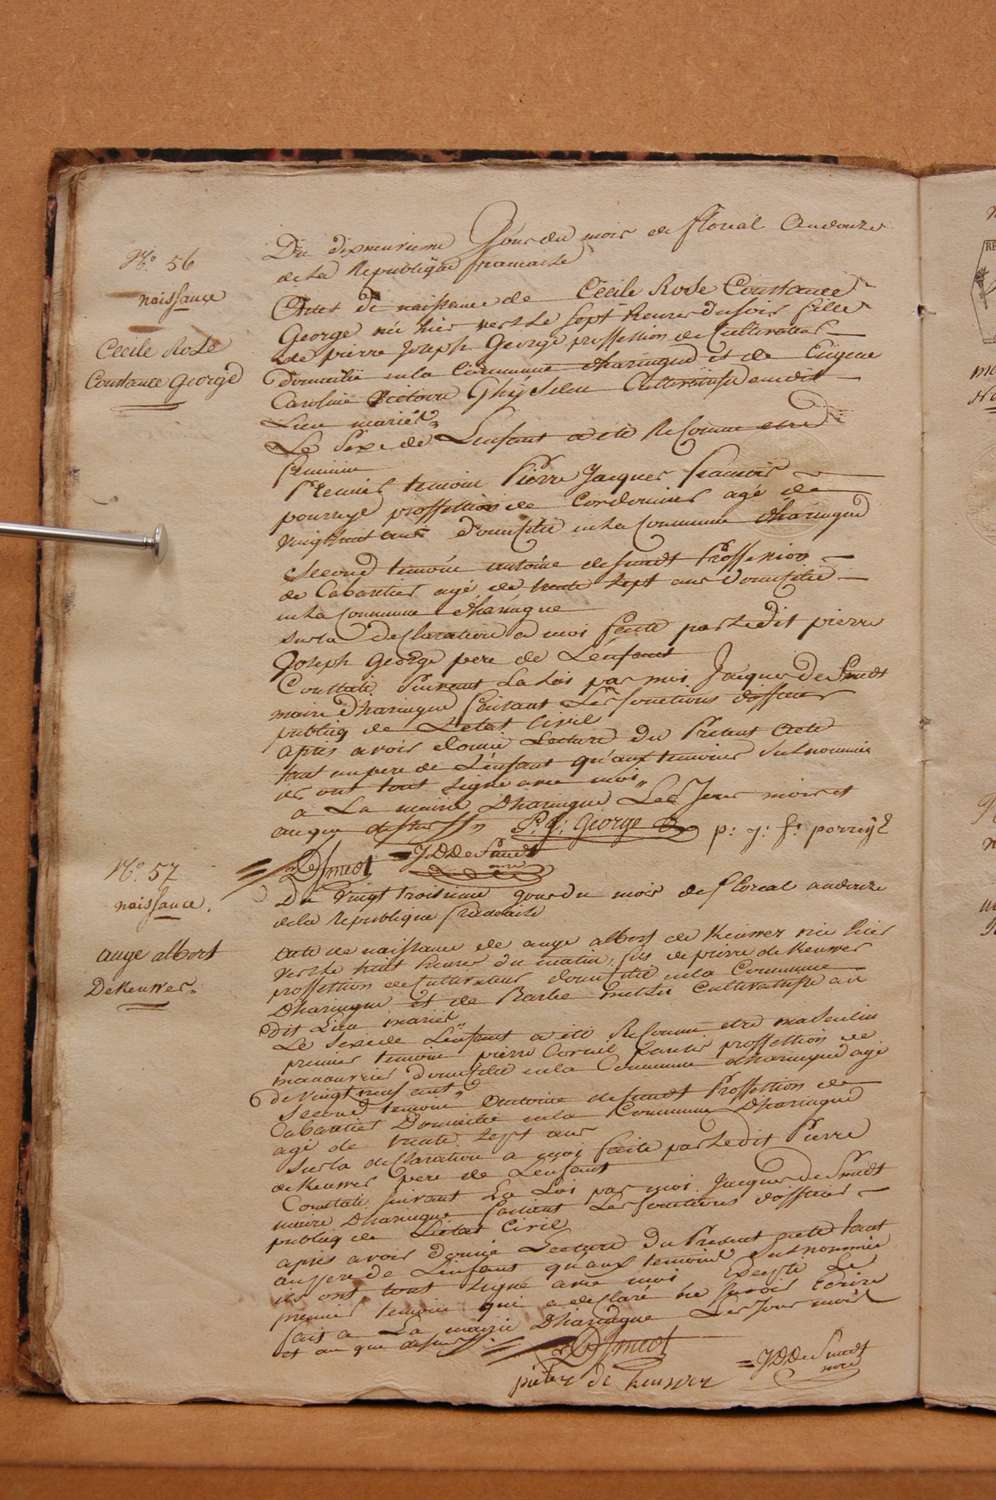 N.o 56
naissance
Cecile Rose
Constance George
Du dixneuvieme Jour du mois de floreal an douze
de la Republique francaise
Acte de naissance de Cecile Rose Constance
George née hier vers le sept heures du soir fille
de pierre Joseph George proffession de Cultivateur
domicilié en la Commune dharingue et de Eugene
Caroline Victoire Ghyselen Cultivatrise audit
Lieu mariés
Le Sexe de L'enfant a été Reconnu etre
feminin
Premier temoin Pierre Jacques francois
pourrye proffession de Cordonnier agé de
vingt huit ans domicilié en la Commune dharingue
Second temoin antoine desmedt Proffession
de Cabartier agé de trente sept ans domicilié
en la Commune dharingue
sur la declaration a moi faite par Ledit pierre
Joseph George pere de L'enfant
Constaté suivant La Loi par moi Jacques de Smedt
maire dharingue faisant Les fonctions dofficier
publiq de L'etat Civil
apres avoir donné Lecture du Present acte
tant au pere de L'enfant qu'aux temoins susnommés
ils ont tout signé avec moi
a La mairie Dharingue Les Jour mois et
an que dessus P. J. George p: j: f: porreije
DeSmedt J D DeSmedt
N.o 57
naissance.
ange albert
DeKeuwer.
Du vingt troisieme jour du mois de floreal an douze
de la Republique francaise
acte de naissance de ange albert de Keuwer née hier
vers le huit heures du matin, fils de pierre de Keuwer
proffession de Cultivateur domicilié en la Commune
Dharingue et de Barbe Cultivatrise au
dit Lieu mariés
Le sexe de L'enfant a été Reconnu etre masculin
premier temoin pierre Corneil proffession de
manouvrier domicilié en la Commune dharingue agé
de vingt neuf ans
Second temoin antoine desmedt Proffession de
Cabartier Domicilié en la Commune Dharingue
agé de trente sept ans
sur la declaration a moi faite par Ledit Pierre
de Keuwer pere de L'enfant
Constaté suivant La Loi par moi Jacques de Smedt
maire Dharingue faisant Les fonctions dofficier
publiq de L'etat Civil
apres avoir donné Lecture du Present acte tant
au pere de L'enfant qu'aux temoins susnommés
ils ont tout signé avec moi Excepté Le
premier temoin qui a declaré ne savoir Ecrire
fait a La mairie Dharingue Les Jour mois
et an que dessus
DeSmedt
pieter de keuwer J D DeSmedt